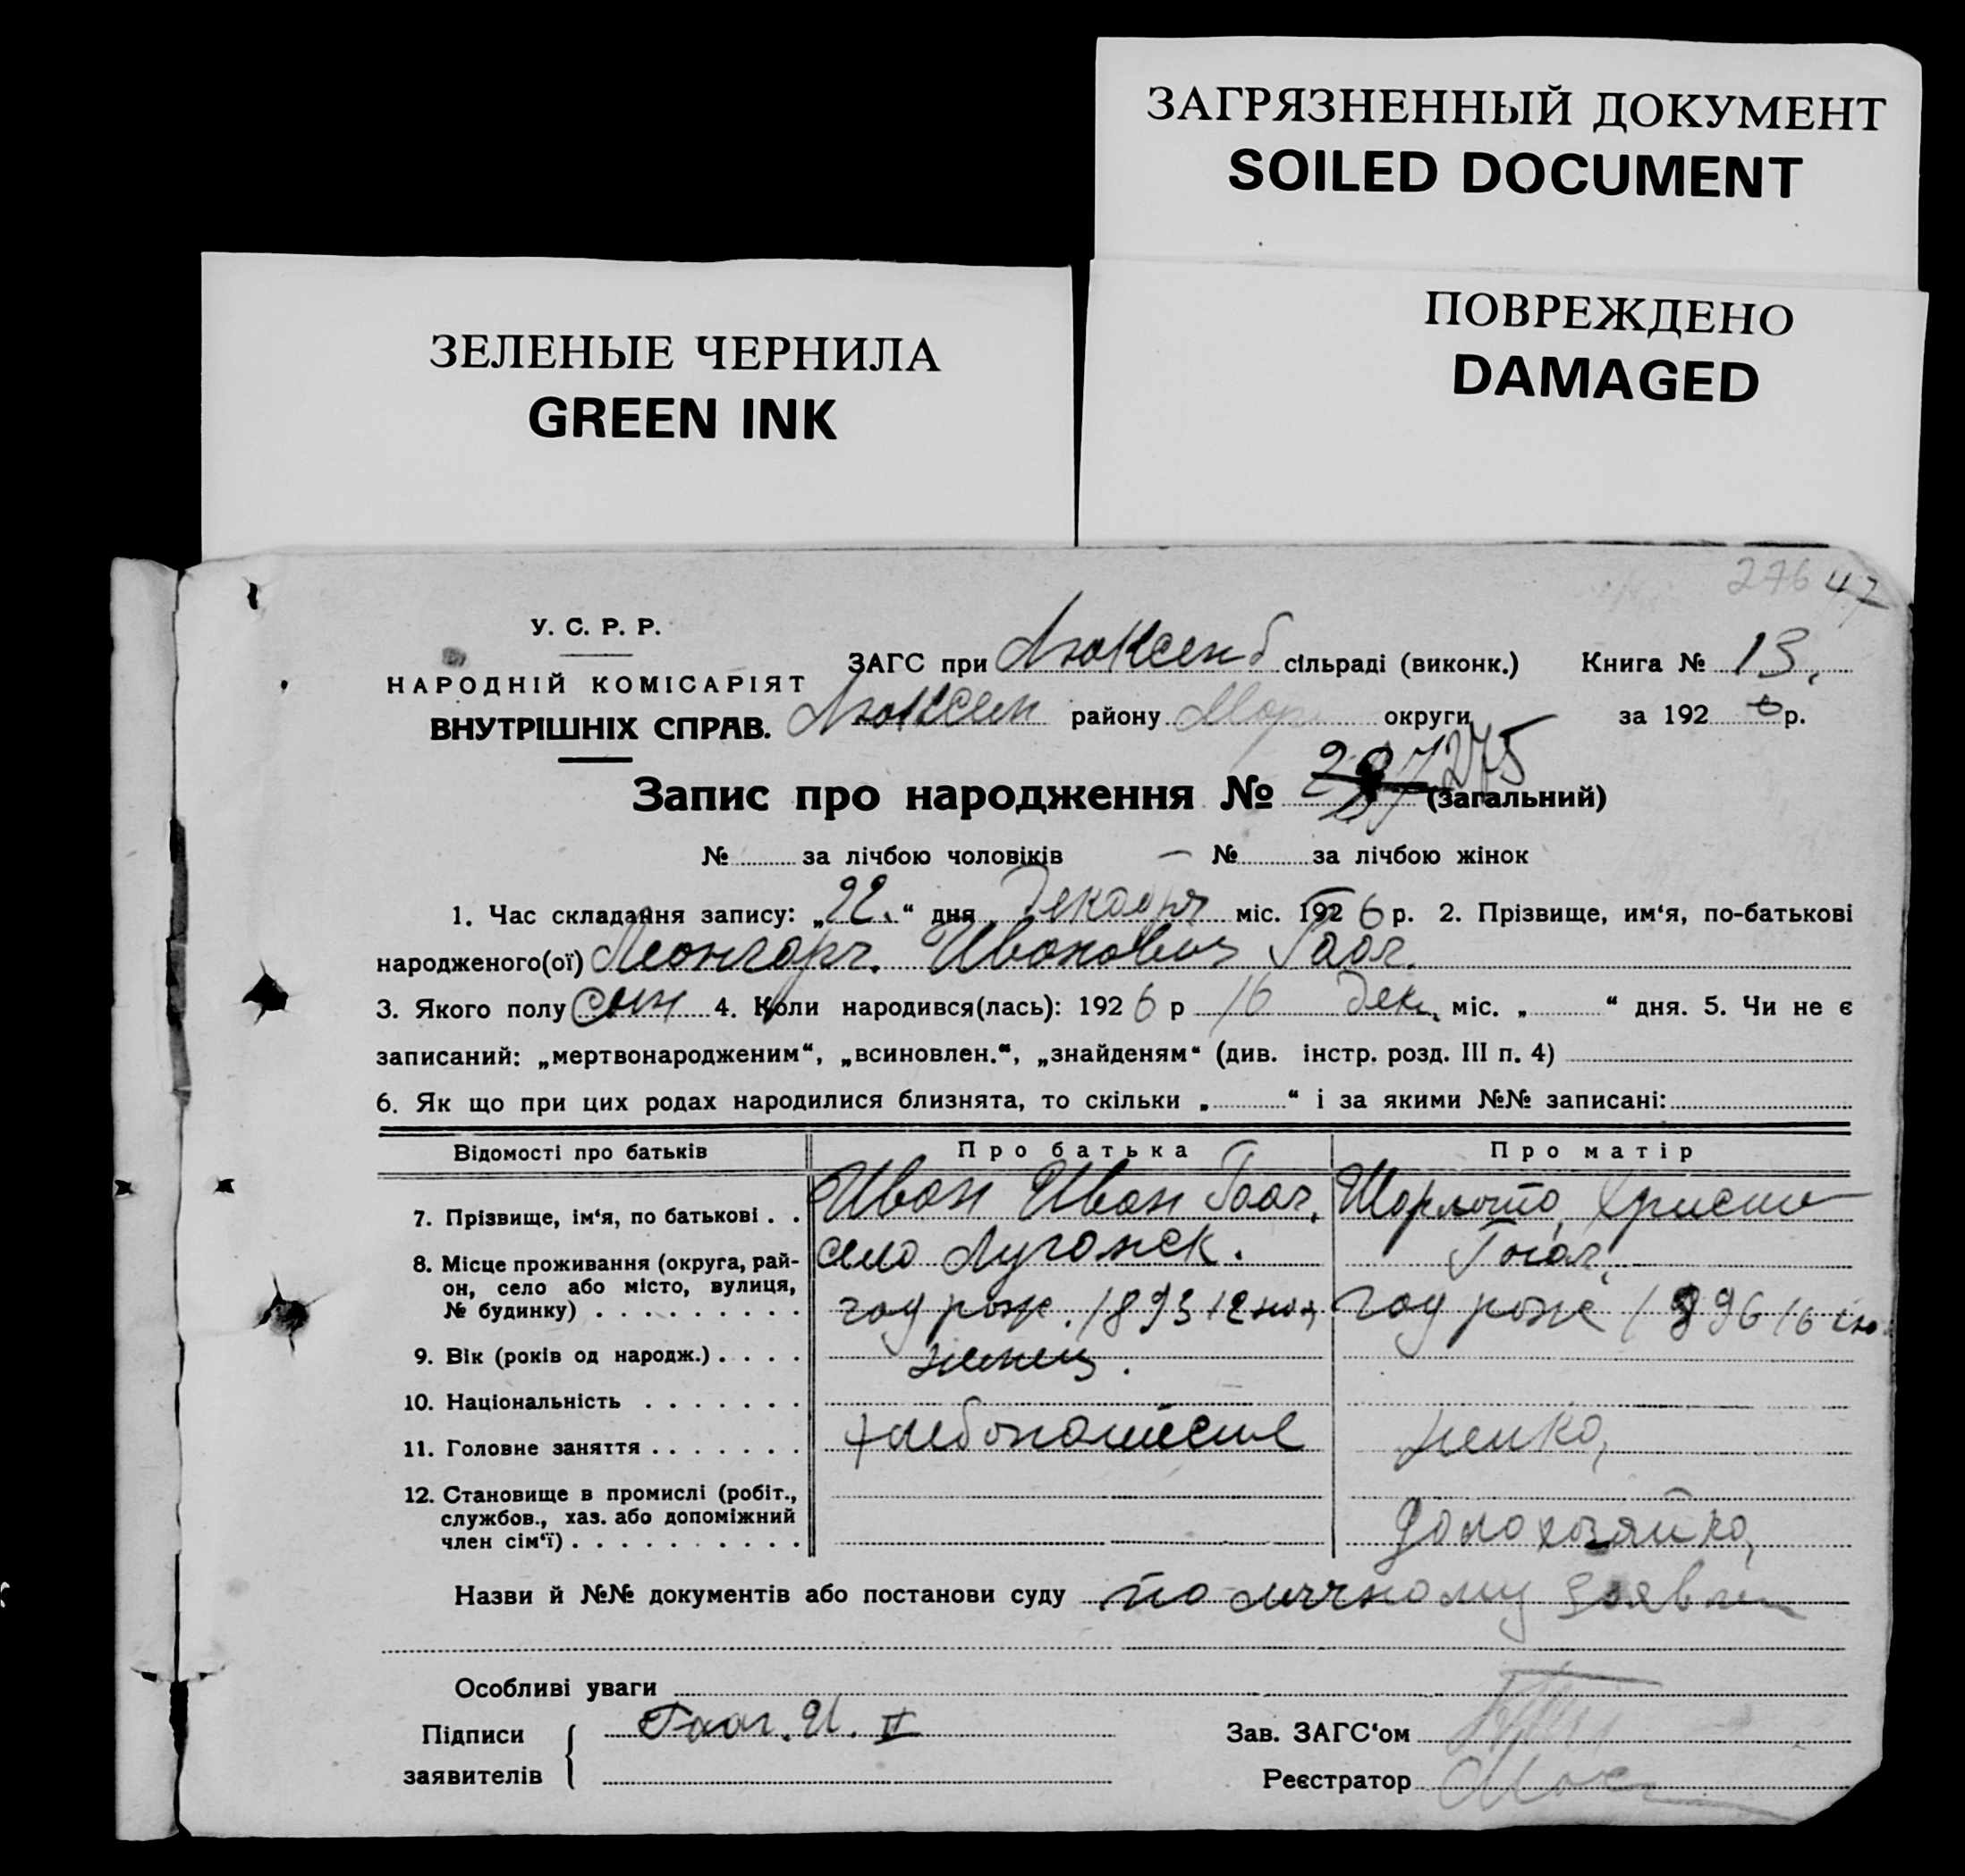 ЗАГРЯЗНЕННЫЙ ДОКУМЕНТ
SOILED DOCUMENT
ПОВРЕЖДЕНО
DAMAGED
ЗЕЛЕНЫЕ ЧЕРНИЛА
GREEN INK
276 47
У. С. Р. Р.
НАРОДНІЙ КОМІСАРІЯТ
ВНУТРІШНІХ СПРАВ.
ЗАГС при Люксемб сільраді (виконк.) Книга № 13.
Люксем району Мар округи за 192 6 р.
Запис про народження № 275 (загальний)
№ за лічбою чоловіків — № за лічбою жінок
1. Час складання запису: „22.“ дня Декабря міс. 1926 р. 2. Прізвище, им‘я, по-батькові
народженого(ої) Леонгард. Иванович Гааг.
3. Якого полу сын 4. Коли народився(лась): 1926 р 16 Дек. міс. „ “ дня. 5. Чи не є
записаний: „мертвонародженим“, „всиновлен.“, „знайденям“ (див. інстр. розд. III п. 4)
6. Як що при цих родах народилися близнята, то скільки „ “ і за якими №№ записані:
Відомості про батьків Про батька Про матір
7. Прізвище, ім‘я, по батькові . . Иван Иван Гааг. Шарлота, Христи
Гааг,
8. Місце проживання (округа, рай-
он, село або місто, вулиця,
№ будинку) . . . . . . . . . село Луганск.
9. Вік (років од народж.) . . . . год рож. 1893 12 ноя год рож 1896 16
10. Національність . . . . . . . немец. немка,
11. Головне заняття . . . . . . . хлебопашество
12. Становище в промислі (робіт.,
службов., хаз. або допоміжний
член сім‘ї) . . . . . . . . . . домохозяйка,
Назви й №№ документів або постанови суду по личному заявлен
Особливі уваги
Підписи
заявителів
Гааг. И. II
Зав. ЗАГС‘ом
Реєстратор